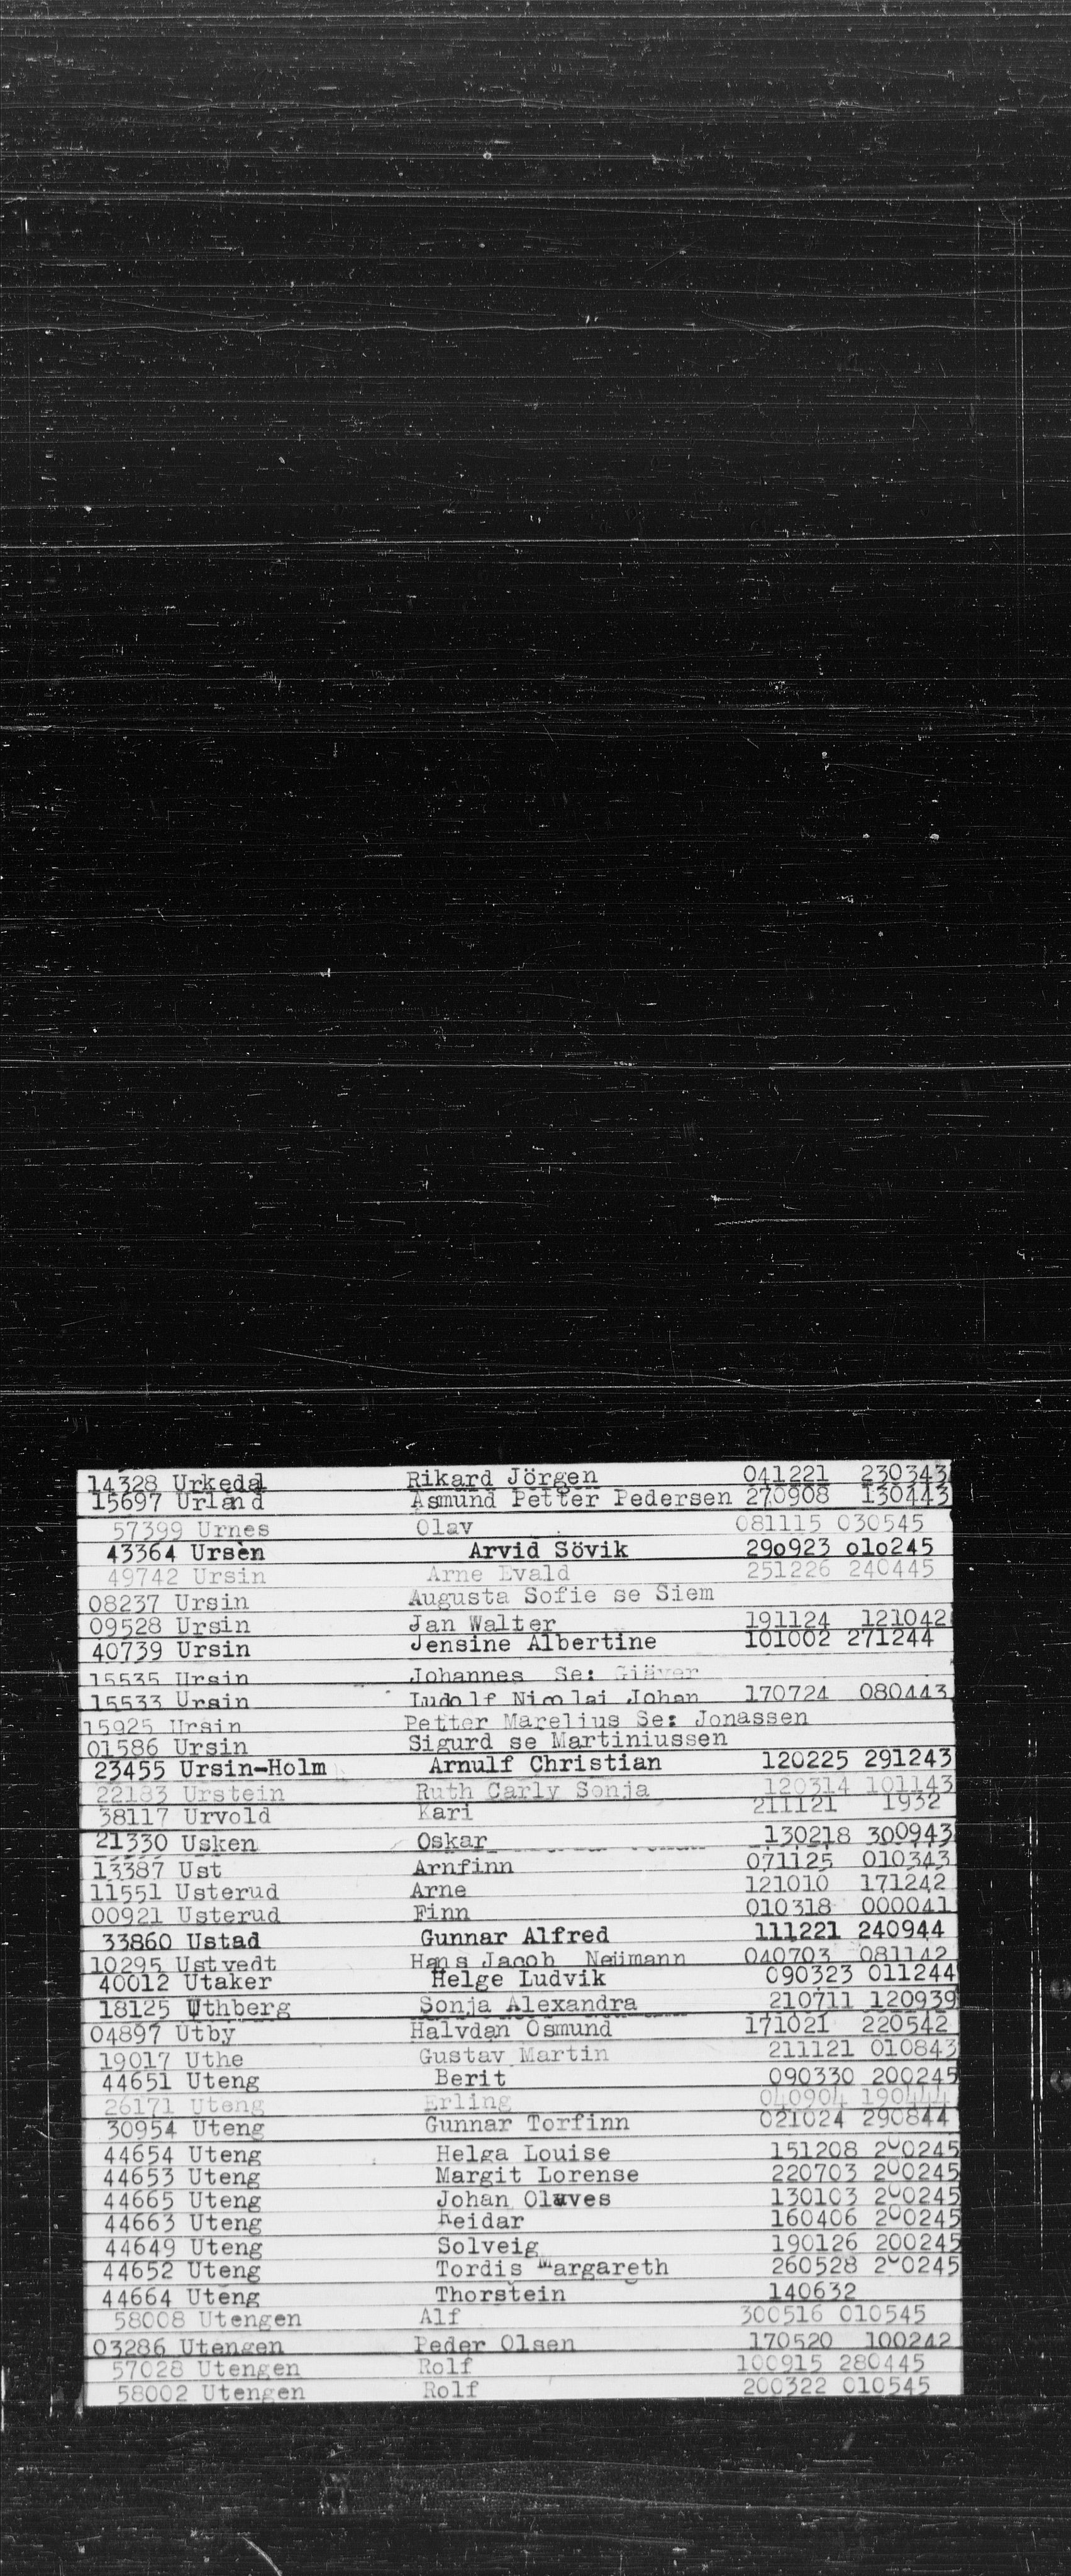 14328 Urkedal Rikard Jörgen 041221 230343
15697 Urland Asmund Petter Pedersen 270908 130443
57399 Urnes Olav 081115 030545
43364 Ursèn Arvid Sövik 290923 010245
49742 Ursin Arne Evald 251226 240445
08237 Ursin Augusta Sofie se Siem
09528 Ursin Jan Walter 191124 121042
40739 Ursin Jensine Albertine 101002 271244
15535 Ursin Johannes Se: Giäver
15533 Ursin Ludolf Nicolai Johan 170724 080443
15925 Ursin Petter Marelius Se: Jonassen
01586 Ursin Sigurd se Martiniussen
23455 Ursin-Holm Arnulf Christian 120225 291243
22183 Urstein Ruth Carly Sonja 120314 101143
38117 Urvold Kari 211121 1932
21330 Usken Oskar 130218 300943
13387 Ust Arnfinn 071125 010343
11551 Usterud Arne 121010 171242
00921 Usterud Finn 010318 000041
33860 Ustad Gunnar Alfred 111221 240944
10295 Ustvedt Hans Jacob Neümann 040703 081142
40012 Utaker Helge Ludvik 090323 011244
18125 Uthberg Sonja Alexandra 210711 120939
04897 Utby Halvdan Osmund 171021 220542
19017 Uthe Gustav Martin 211121 010843
44651 Uteng Berit 090330 200245
26171 Uteng Erling 040904 190444
30954 Uteng Gunnar Torfinn 021024 290844
44654 Uteng Helga Louise 151208 200245
44653 Uteng Margit Lorense 220703 200245
44665 Uteng Johan Olaves 130103 200245
44663 Uteng Reidar 160406 200245
44649 Uteng Solveig 190126 200245
44652 Uteng Tordis Margareth 260528 200245
44664 Uteng Thorstein 140632
58008 Utengen Alf 300516 010545
03286 Utengen Peder Olsen 170520 100242
57028 Utengen Rolf 100915 280445
58002 Utengen Rolf 200322 010545